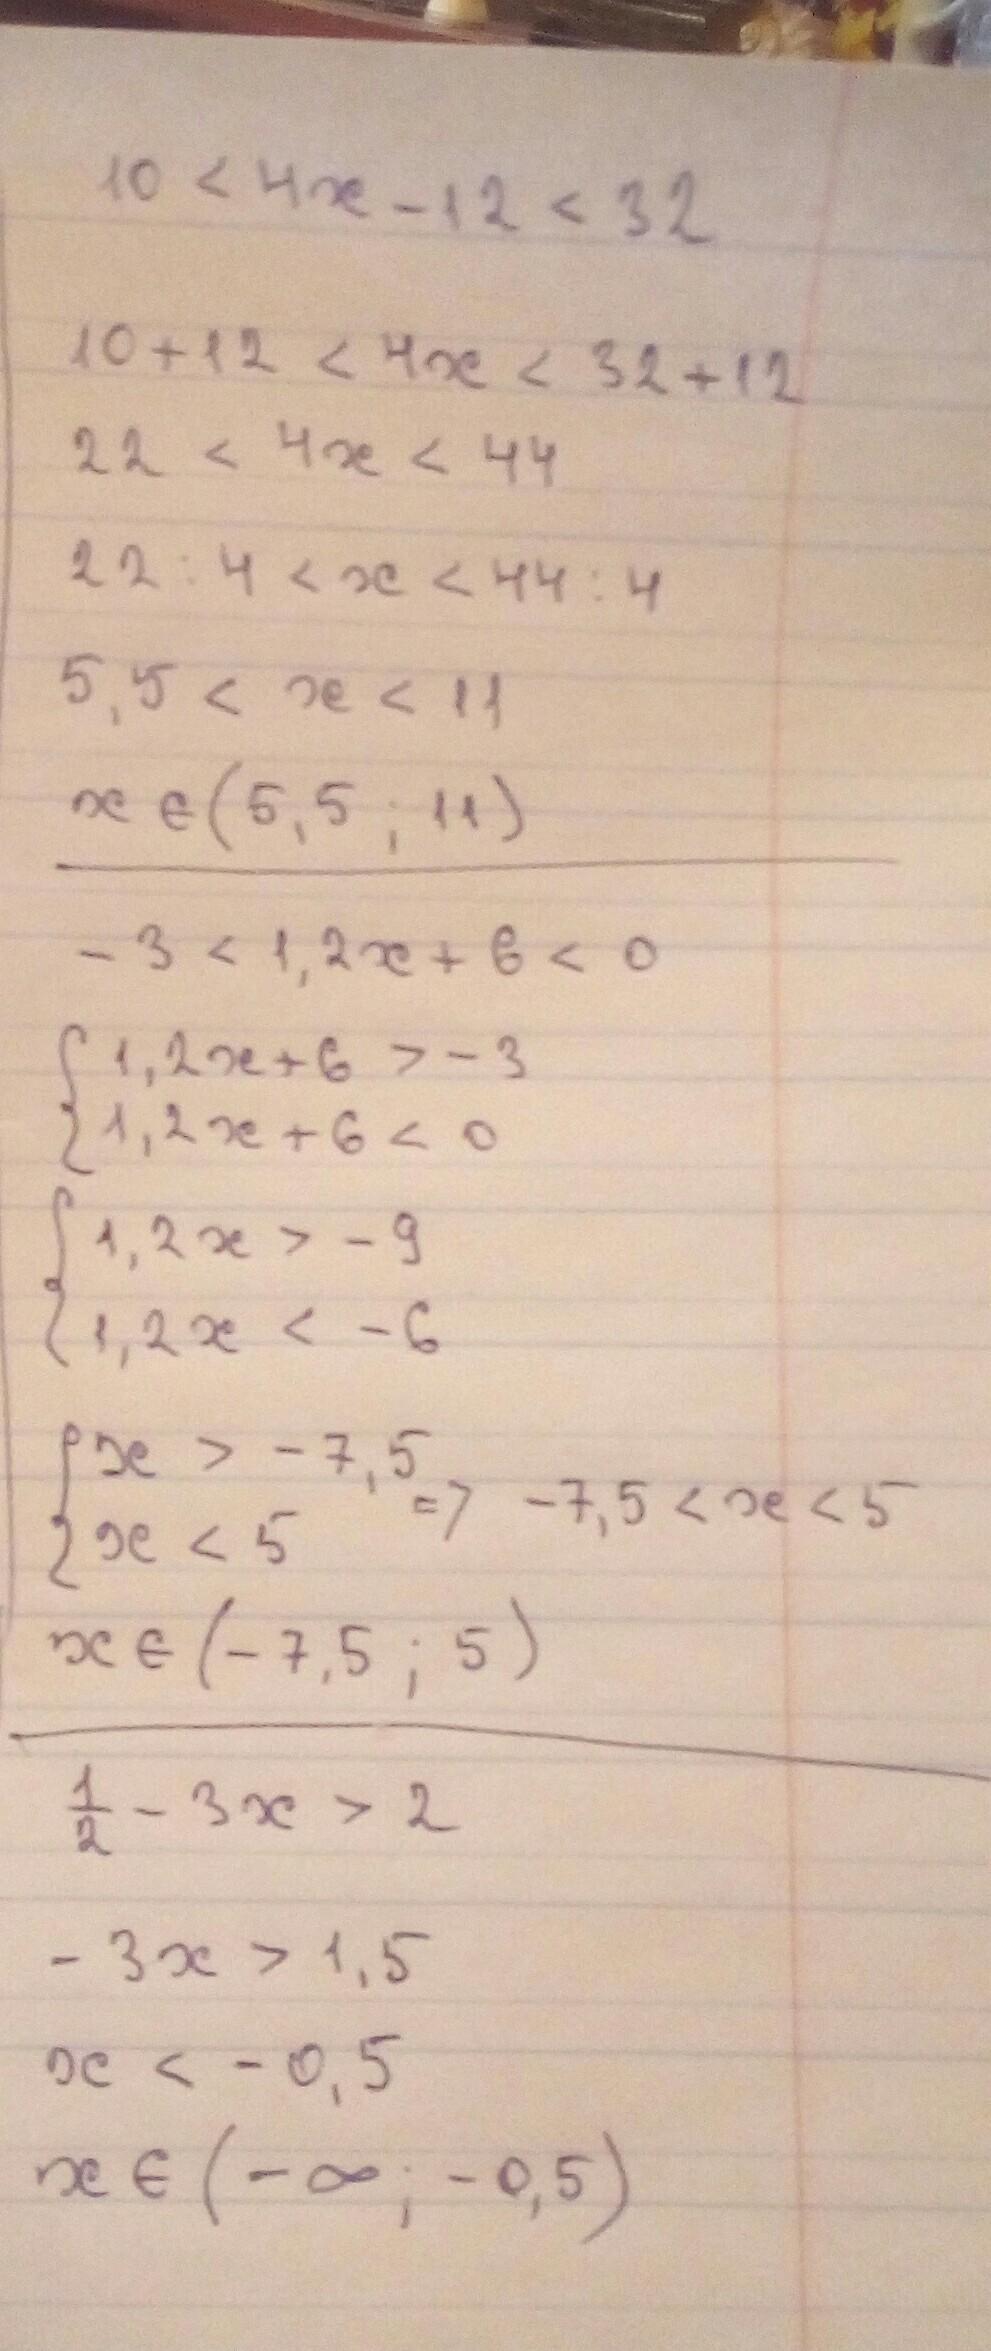 10 < 4x - 12 < 32
10 + 12 < 4x < 32 + 12
22 < 4x < 44
22 : 4 < x < 44 : 4
5,5 < x < 11
x ∈ (5,5 ; 11)
- 3 < 1,2x + 6 < 0
{ 1,2x + 6 > - 3
1,2x + 6 < 0
{ 1,2x > - 9
1,2x < - 6
{ x > - 7,5
x < 5 => - 7,5 < x < 5
x ∈ (- 7,5 ; 5)
1/2 - 3x > 2
- 3x > 1,5
x < - 0,5
x ∈ (- ∞ ; - 0,5)